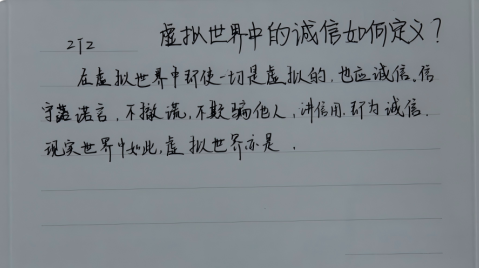 212 虚拟世界中的诚信如何定义？
在虚拟世界中即使一切是虚拟的,也应诚信。信
守诺言,不撒谎,不欺骗他人,讲信用.即为诚信.
现实世界中如此,虚拟世界亦是.